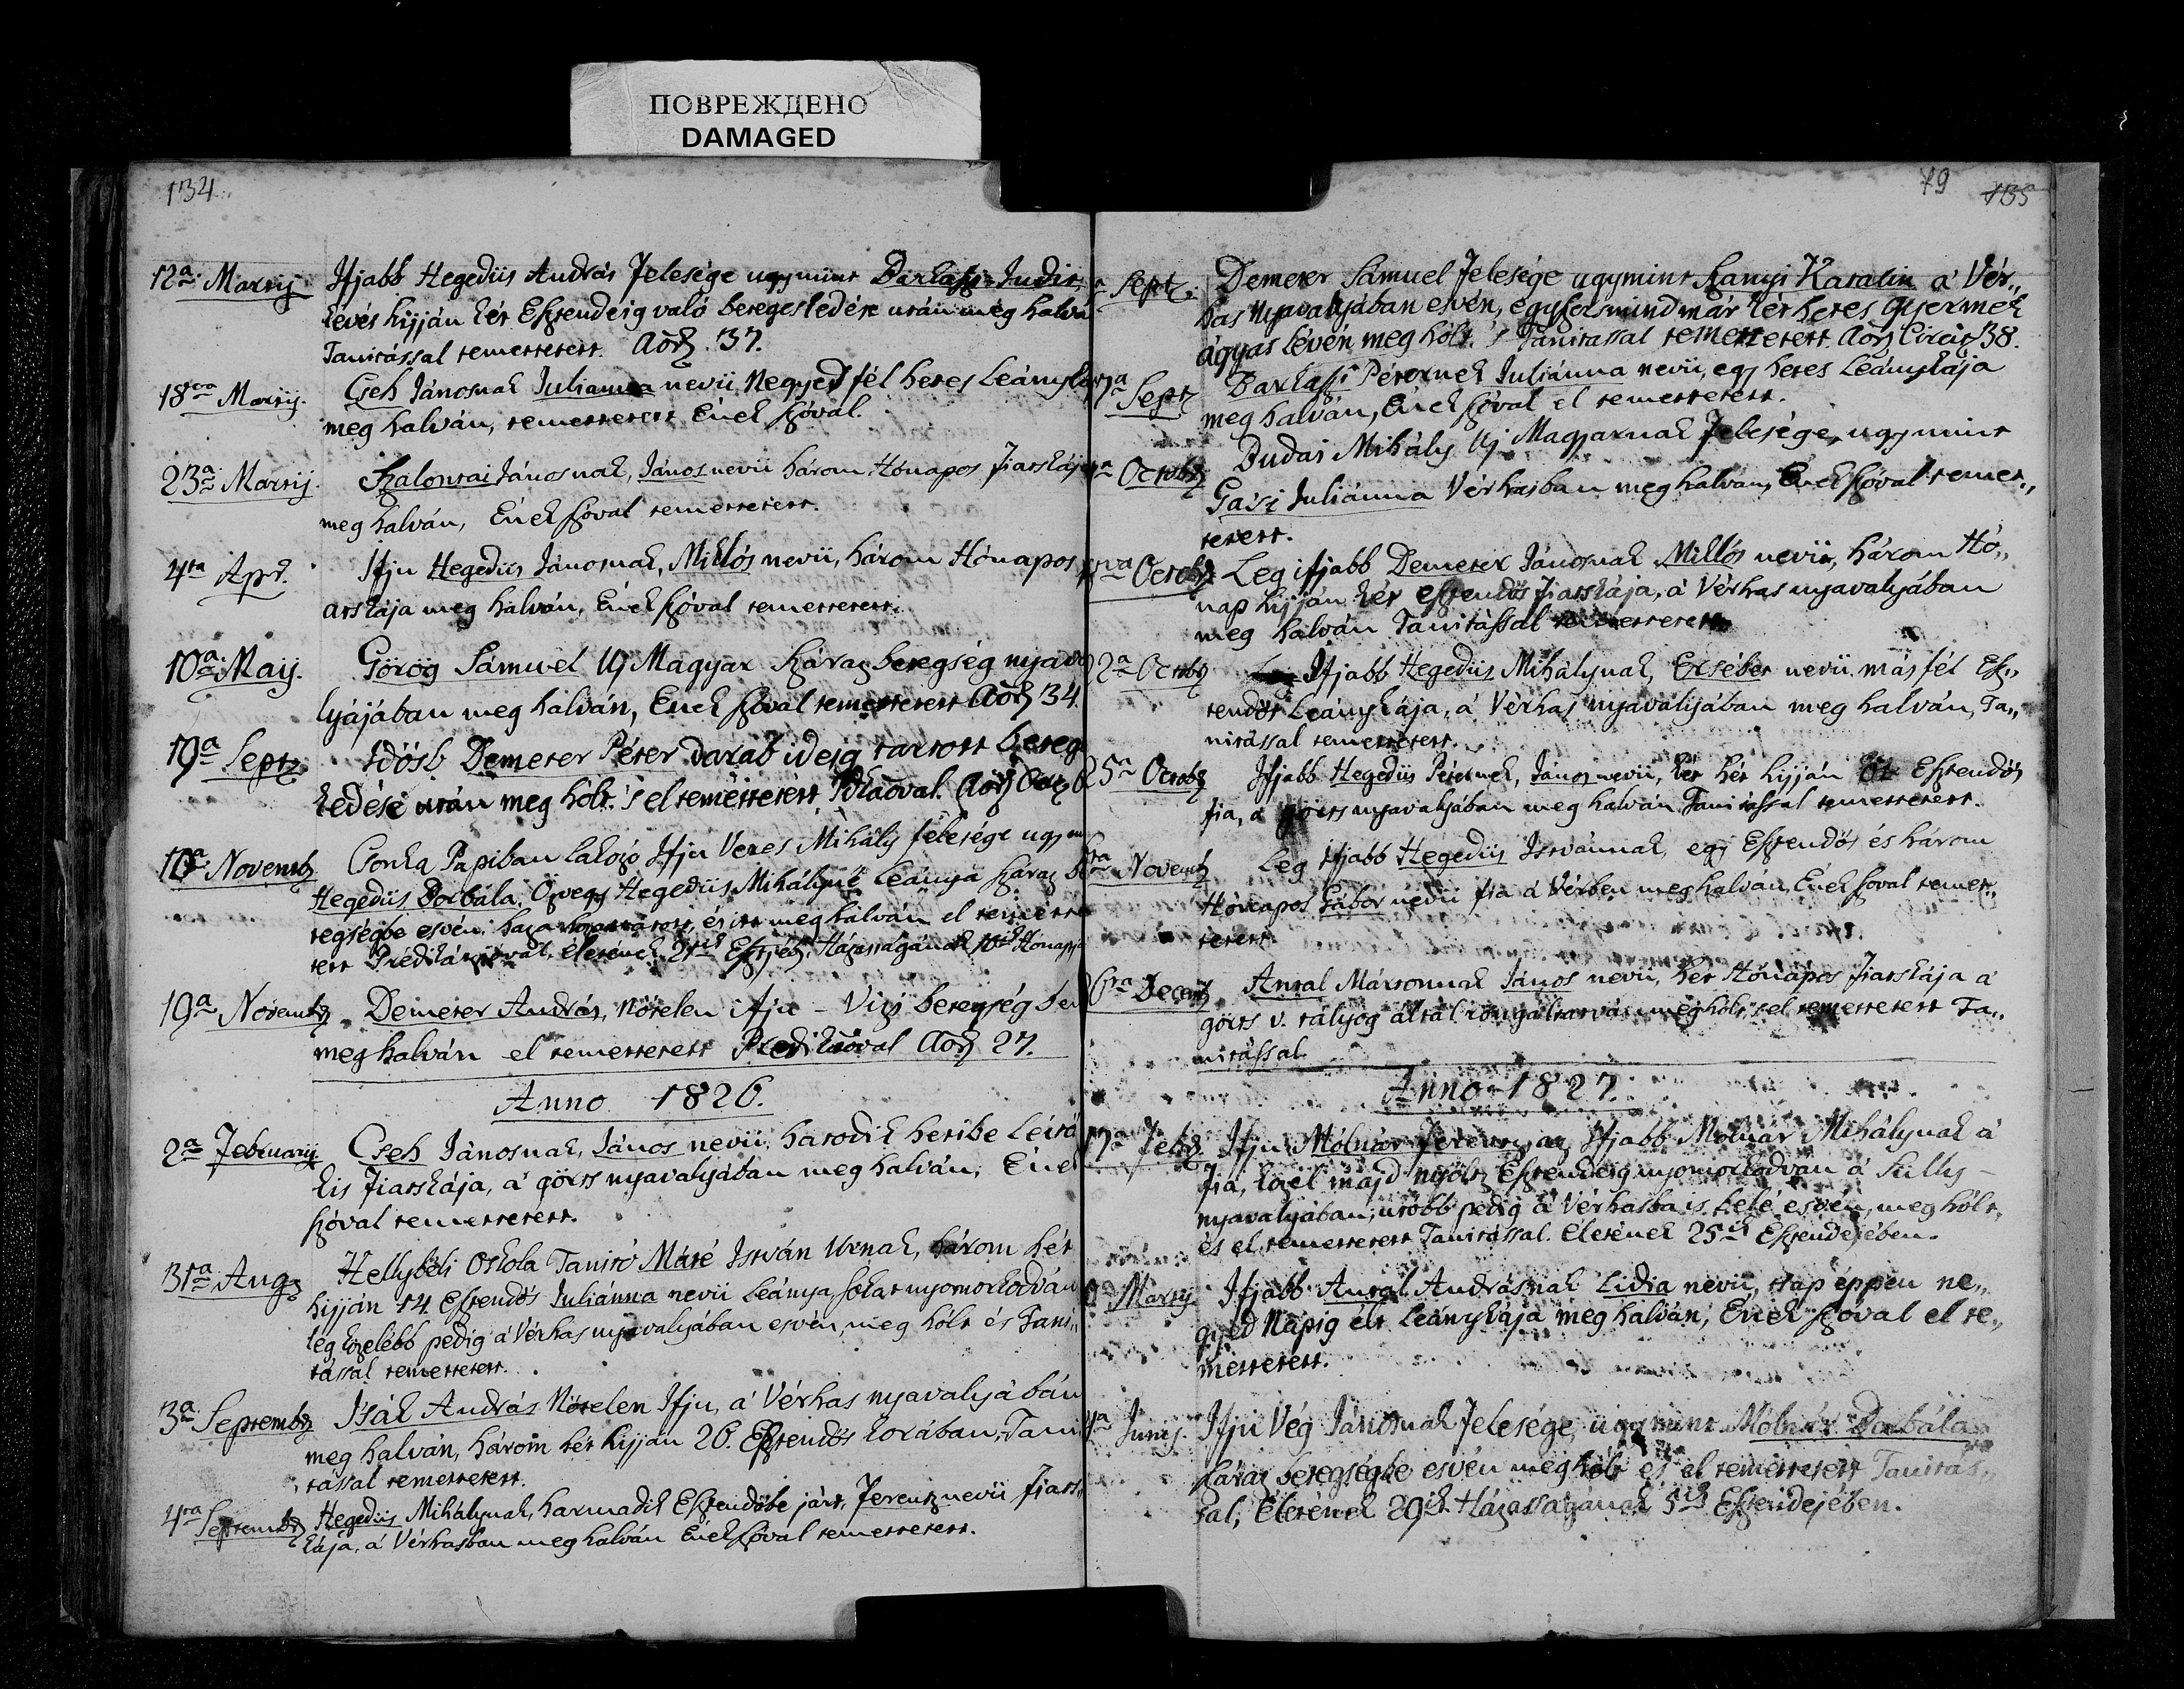 ПОВРЕЖДЕНО
DAMAGED
134
12a Martij Ifjabb Hegedüs András Felesége ugymint Barkaszi Judit,
kevés hijján két Esztendeig való betegeskedése után meg halván
Tanitással temettetett. Aõrz 37.
18va Martij. Cseh Jánosnak Julianna nevü Negyed fél hetes Leánykája
meg halván, temettetett Ének szóval.
23a Martij. Kalontai Jánosnak, János nevü három Hónapos Fiatskája
meg halván, Ének szóval temettetett.
4ta Apr. Ifju Hegedüs Jánosnak, Miklós nevü, három Hónapos
atskája meg halván, Ének szóval temettetett.
10a Maij. Görög Sámuel Uj Magyar száraz betegség nyava
lyájában meg halván, Ének szóval temettetett Aõrz 34.
19a Septz Idösb Demeter Péter darab ideig tartott beteges
kedése után meg hólt. 's el temettetett Pdkáõval. Aõrz
10a Novembz Csonka Papiban lakozó Ifju Veres Mihály felesége ugy m
Hegedüs Borbála. Özvegy Hegedüs Mihályné Leánya száraz be
tegségbe esvén haza hozattatott, és itt meg halván el temette
tett Prédikátzióval, életének 21ik Esztjéb. Házasságának 10ik Hónapjá
19a Novembz Demeter András, Nötelen Ifju - Vizi betegség ben
meg halván el temettetett Predikáõval Aõrz 27.
Anno 1826.
2a Februarij Cseh Jánosnak, János nevü hatodik hetibe
kis Fiatskája, a' görts nyavalyában meg halván, Ének
szóval temettetett.
31a Augz Hellybéli Oskola Tanitó Máté István Urnak, három hét
hijján 14. Esztendös Juliánna nevü Leánya sokat nyomorkodván
leg közelébb pedig a' Vérhas nyavalyában esvén, meg hólt és Tani„
tással temettetett.
3a Septembz Isák András Nötelen Ifju, a' Vérhas nyavalyában
meg halván, három hét hijján 26. Esztendös korában, Tani
tással temettetett.
4ta Septembz Hegedüs Mihálynak, harmadik Esztendöbe járt, Ferentz nevü Fiats„
kája, a' Vérhasban meg halván Ének szóval temettetett.
79 135
a Septz. Demeter Sámuel Felesége ugymint Szanyi Katalin a' Vér„
has nyavalyában esvén, egyszersmind már két hetes Gyermek
ágyas lévén meg hólt. 's Tanitassal temettetett. Aõrz Circit 38.
7a Septz Barkaszi Péternek Juliánna nevü, egy hetes Leánykája
meg halván, Ének szóval el temettetett.
a Octobz Dudás Mihály Uj Magyarnak Felesége, ugymint
Gási Juliánna Vérhasban meg halván, Ének szóval temet„
tetett.
va Octobz Leg ifjabb Demeter Jánosnak Miklós nevü, három Hó„
nap hijján két esztendös Fiatskája, a' Vérhas nyavalyában
meg halván Tanitással temettetett
22a Octobz Ifjabb Hegedüs Mihálynak, Ersébet nevü más fél Esz„
tendös Leánykája, a' Vérhas nyavalyában meg halván, Ta„
nitással temettetett.
25a Octobz Ifjabb Hegedüs Péternek, János nevü, két hét hijján öt Esztendös
fia, a' görts nyavalyában meg halván Tanitással temettetett.
ta Novembz Leg ifjabb Hegedüs Istvánnak, egy Esztendös és három
Hónapos Gábor nevü fia a' Vérben meg halván, Ének szoval temet„
tetett.
26ta Decembz Antal Mártonnak János nevü, két Hónapos Fiatskája a'
görts v. tályog által rongáltatván meg hólt, 's el temettetett Ta„
nitással.
Anno 1827.
17a Febrz Ifju Mólnár Ferentz, az Ifjabb Molnár Mihálynak a'
Fia, közel majd nyóltz Esztendeig nyomorkodván a' Sülly -
nyavalyában, utóbb pedig a' Vérhasba is belé esvén, meg hólt,
és el temettetett Tanitással. életének 25ik Esztendejében.
Martij. Ifjabb Antal Andrásnak Lidia nevü, tsap éppen ne„
gyed Napig élt Leánykája meg halván, Ének szóval el te„
mettetett.
4a Junij. Ifju Vég Jánosnak Felesége, ugymint Molnár Borbála
száraz betegségbe esvén meg hólt és el temettetett Tanitás„
sal, Életének 29ik Házasságának 5ik Esztendejében.